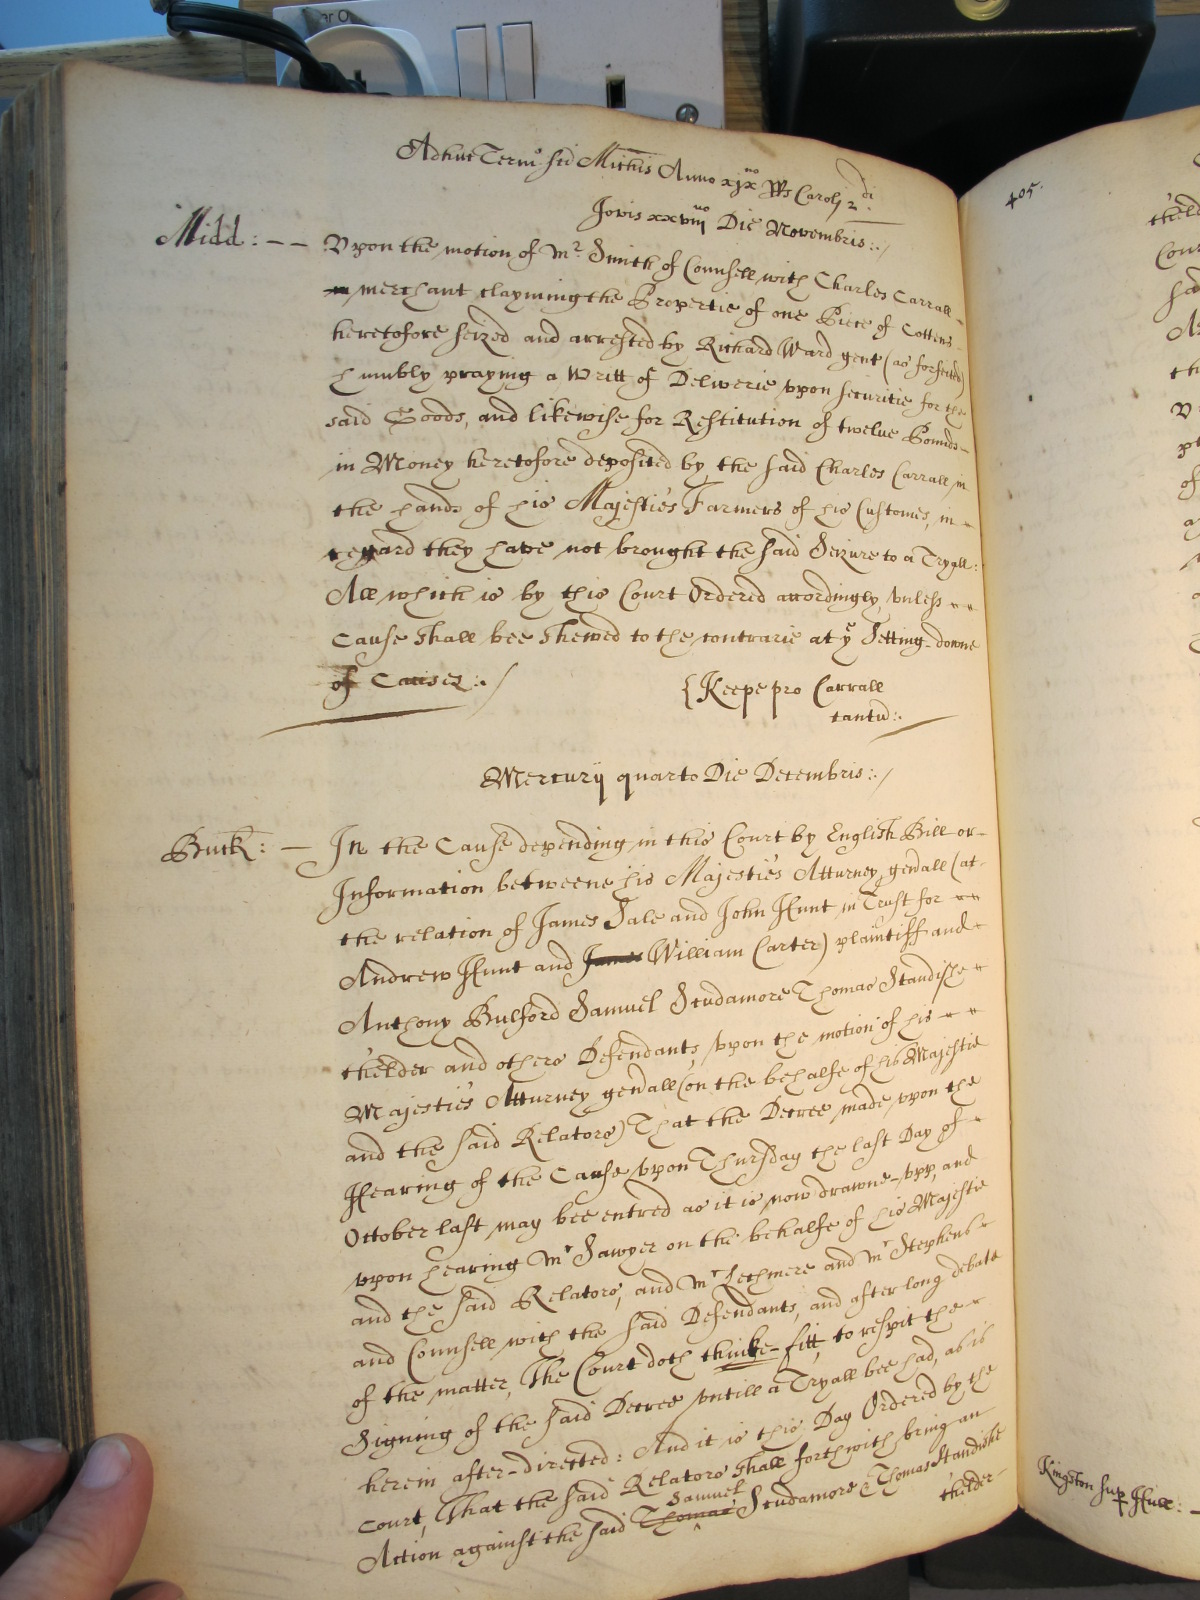 Adhuc Term̃ Scĩ Mich̃is Anno xix no R͠Rs Caroli 2 di:
Jovis xxviii no Die Novembris:./
Midd: — — Vpon the motion of Mr. Smith of Counsell with Charles Carrall
merchant clayming the Propertie of one Piece of Cottens
heretofore seized and arrested by Richard Ward gent (as forfeited)
humbly praying a Writt of Deliverie vpon securitie for the
said Goods, and likewise for Restitution of twelve Pounds
in Money heretofore deposited by the said Charles Carrall in
the hands of his Majesties Farmers of his Customes, in
regard they have not brought the said Seizure to a Tryall:
All which is by this Court Ordered accordingly, vnless
Cause shall bee shewed to the contrarie at ye Setting-downe
of Causes:./
{Keepe pro Carrall
tantũ:.
Mercurij quarto Die Decembris:./
Buck: — In the Cause depending in this Court by English Bill or
Information betweene his Majesties Atturney gen̄all (at
the relation of James Sale and John Hunt in Trust for
Andrew Hunt and James William Carter) plaintiff and
Anthony Bulford Samuel Scudamore Thomas Standishe
th'elder and others Defendants, vpon the motion of his
Majesties Atturney gen̄all (on the behalfe of his Majestie
and the said Relators) That the Decree made vpon the
Hearing of the Cause vpon Thursday the last Day of
October last may bee entred as it is now drawne-vpp, and
vpon hearing Mr Sawyer on the behalfe of his Majestie
and the said Relators, and Mr Lechmere and Mr Stephens
and Counsell with the said Defendants, and after long debate
of the matter, The Court doth thinke-fitt, to respit the
Signing of the said Decree vntill a Tryall bee had, as is
herein after-directed: And it is this Day Ordered by the
Court, That the said Relators shall forthwith bring an
Action against the said Thomas Samuel Scudamore Thomas Standishe
th'elder
405.
th'eld
Cour
Kingston sup Hull: